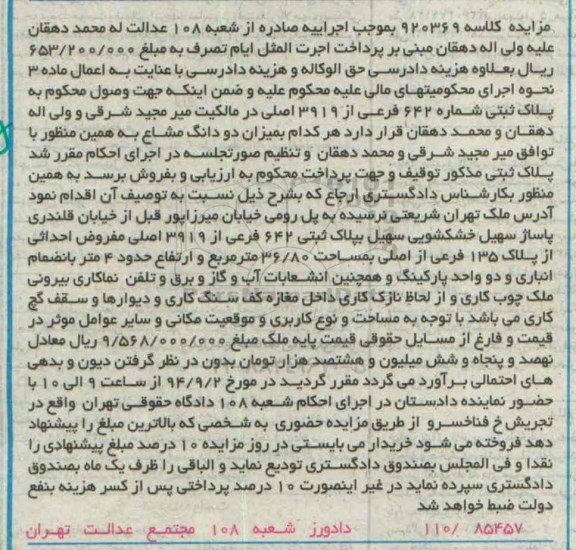 مزایده کلاسه ۹۲۰۳۶۹ بموجب اجراییه صادره از شعبه ۱۰۸ عدالت له محمد دهقان
علیه ولی اله دهقان مبنی بر پرداخت اجرت المثل ایام تصرف به مبلغ ۶۵۳/۲۰۰/۰۰۰
ریال بعلاوه هزینه دادرسی حق الوکاله و هزینه دادرسی با عنایت به اعمال ماده ۳
نحوه اجرای محکومیتهای مالی علیه محکوم علیه و ضمن اینکه جهت وصول محکوم به
پلاک ثبتی شماره ۶۴۲ فرعی از ۳۹۱۹ اصلی در مالکیت میر مجید شرقی و ولی اله
دهقان و محمد دهقان قرار دارد هر کدام بمیزان دو دانگ مشاع به همین منظور با
توافق میر مجید شرقی و محمد دهقان و تنظیم صورتجلسه در اجرای احکام مقرر شد
پلاک ثبتی مذکور توقیف و جهت پرداخت محکوم به ارزیابی و بفروش برسد به همین
منظور بکارشناس دادگستری ارجاع که بشرح ذیل نسبت به توصیف آن اقدام نمود
آدرس ملک تهران شریعتی نرسیده به پل رومی خیابان میرزاپور قبل از خیابان قلندری
پاساژ سهیل خشکشویی سهیل بپلاک ثبتی ۶۴۲ فرعی از ۳۹۱۹ اصلی مفروض احداثی
از پلاک ۱۳۵ فرعی از اصلی بمساحت ۳۶/۸۰ مترمربع و ارتفاع حدود ۴ متر بانضمام
انباری و دو واحد پارکینگ و همچنین انشعابات آب و گاز و برق و تلفن نماکاری بیرونی
ملک چوب کاری و از لحاظ نازک کاری داخل مغازه کف سنگ کاری و دیوارها و سقف گچ
کاری می باشد با توجه به مساحت و نوع کاربری و موقعیت مکانی و سایر عوامل موثر در
قیمت و فارغ از مسایل حقوقی قیمت پایه ملک مبلغ ۹/۵۶۸/۰۰۰/۰۰۰ ریال معادل
نهصد و پنجاه و شش میلیون و هشتصد هزار تومان بدون در نظر گرفتن دیون و بدهی
های احتمالی برآورد می گردد مقرر گردید در مورخ ۹۴/۹/۲ از ساعت ۹ الی ۱۰ با
حضور نماینده دادستان در اجرای احکام شعبه ۱۰۸ دادگاه حقوقی تهران واقع در
تجریش خ فناخسرو از طریق مزایده حضوری به شخصی که بالاترین مبلغ را پیشنهاد
دهد فروخته می شود خریدار می بایستی در روز مزایده ۱۰ درصد مبلغ پیشنهادی را
نقدا و فی المجلس بصندوق دادگستری تودیع نماید و الباقی را ظرف یک ماه بصندوق
دادگستری سپرده نماید در غیر اینصورت ۱۰ درصد پرداختی پس از کسر هزینه بنفع
دولت ضبط خواهد شد
۸۵۴۵۷ /۱۱۰ دادورز شعبه ۱۰۸ مجتمع عدالت تهران